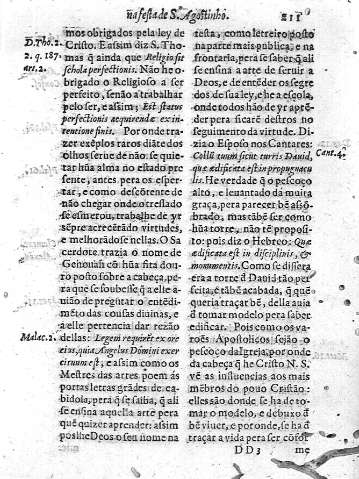 na festa de S. Agostinho.
211
mos obrigados pela ley de
Cristo. E assim diz S. Tho-
mas q̃ ainda que Religio sit
schola perfectionis. Não he o
brigado o Religioso a ser
perfeito, senão a trabalhar
pelo ser, e assim; Est status
perfectionis acquirendæ ex in-
tentione finis. Por onde tra-
zer exẽplos raros diãte dos
olhos serue de não se quie-
tar hũa alma no estado pre
sente, antes pera os esper-
tar, e como descõtente de
não chegar onde o treslado
se esmerou, trabalhe de yr
sẽpre acrecẽrãdo virtudes,
e melhorãdose nellas. O Sa
cerdote trazia o nome de
Gehouah cõ hũa fita dou-
ro posto sobre a cabeça, pe-
ra que se soubesse q̃ a elle a-
uião de pregũtar o entẽdi-
mẽto das cousas diuinas, e
a elle pertencia dar rezão
dellas: Legem requirẽt ex ore
eius, quia Angelus Domini exer
cituum est, e assim como os
Mestres das artes poem ás
portas letras grãdes de ca-
bidola, pera q̃ se saiba, q̃ ali
se ensina aquella arte pera
que quizer aprender: assim
pos lhe Deos o seu nome na
D. Tho. 2.
2. q. 187.
art. 2.
Malac. 2.
testa, como letreiro posto
na parte mais publica, e na
frontaria, pera se saber q̃ ali
se ensina a arte de seruir a
Deos, e de entẽder os segre-
dos de sua ley, e he a escola,
onde todos hão de yr aprẽ-
der pera ficarẽ destros no
seguimento da virtude. Di-
zia o Esposo nos Cantares:
Collũ tuum sicut turris Dauid,
quæ ædificata est in propugnacu
lis. He verdade q̃ o pescoço
alto, e leuantado dá muita
graça, pera parecer bẽ assõ-
brado, mas tãbẽ ser como
hũa torre, não tẽ proposi-
to: pois diz o Hebreo: Quæ
ædificata est in disciplinis, &
monumentis. Como se dissera
era a torre d̃ Dauid tão per
feita, e tãbẽ acabada, q̃ quẽ
queria traçar bẽ, della auia
d̃ tomar modelo pera saber
edificar. Pois como os va-
rões Apostolicos sejão o
pescoço da Igreja, por onde
da cabeça q̃ he Cristo N. S.
vẽ as influencias aos mais
mẽbros do pouo Cristão:
elles são donde se ha de to-
mar o modelo, e debuxo d̃
bẽ viuer, e por onde, se ha d̃
traçar a vida pera ser cõfor
Cant. 4.
DD 3
me